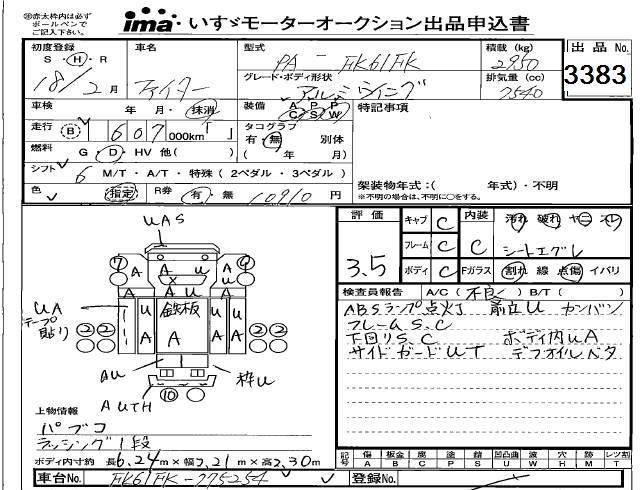 ※赤太枠内は必ず
ボールペンで
ご記入下さい。
ima いすゞモーターオークション出品申込書
出品 No.
3383
初度登録
S・H・R
18/2月
車名
ファイター
型式
PA-FK61FK
積載 (kg)
2950
グレード・ボディ形状
アルミウィング
排気量 (cc)
7540
車検
年 月・抹消
装備
A P P
C S W
特記事項
走行
B 1607 000km
タコグラフ
有・無 別体
( 年 月)
燃料
G・D・HV 他( )
シフト
6 M/T・A/T・特殊 (2ペダル・3ペダル)
色
指定
R券
有・無 10910円
架装物年式:( 年式)・不明
※不明の場合は、不明に○をする。
評価
3.5
キャブ C
フレーム C
ボディ C
内装
C
汚れ 破れ ヤニ スレ
シートエグレ
Fガラス
割れ 線 点傷 イバリ
検査員報告
A/C(不良) B/T( )
ABSランプ点灯 前立U カンバン
フレームS.C
下回りS.C ボディ内UA
サイドガードUT デフオイルベタ
UAS
7 A A U 9
A A A
UA
テープ
貼り
鉄板
U A U U
A
2 2 2 2
AU
枠U
AUTH
10
上物情報
パブコ
ラッシング1段
ボディ内寸約 長6.24m×幅2.21m×高2.30m
記号
傷 板金 腐 塗 錆 凹 凸曲 波 穴 歩 レツ割
A B C P S U W H M T
車台No.
FK61FK-775254
登録No.